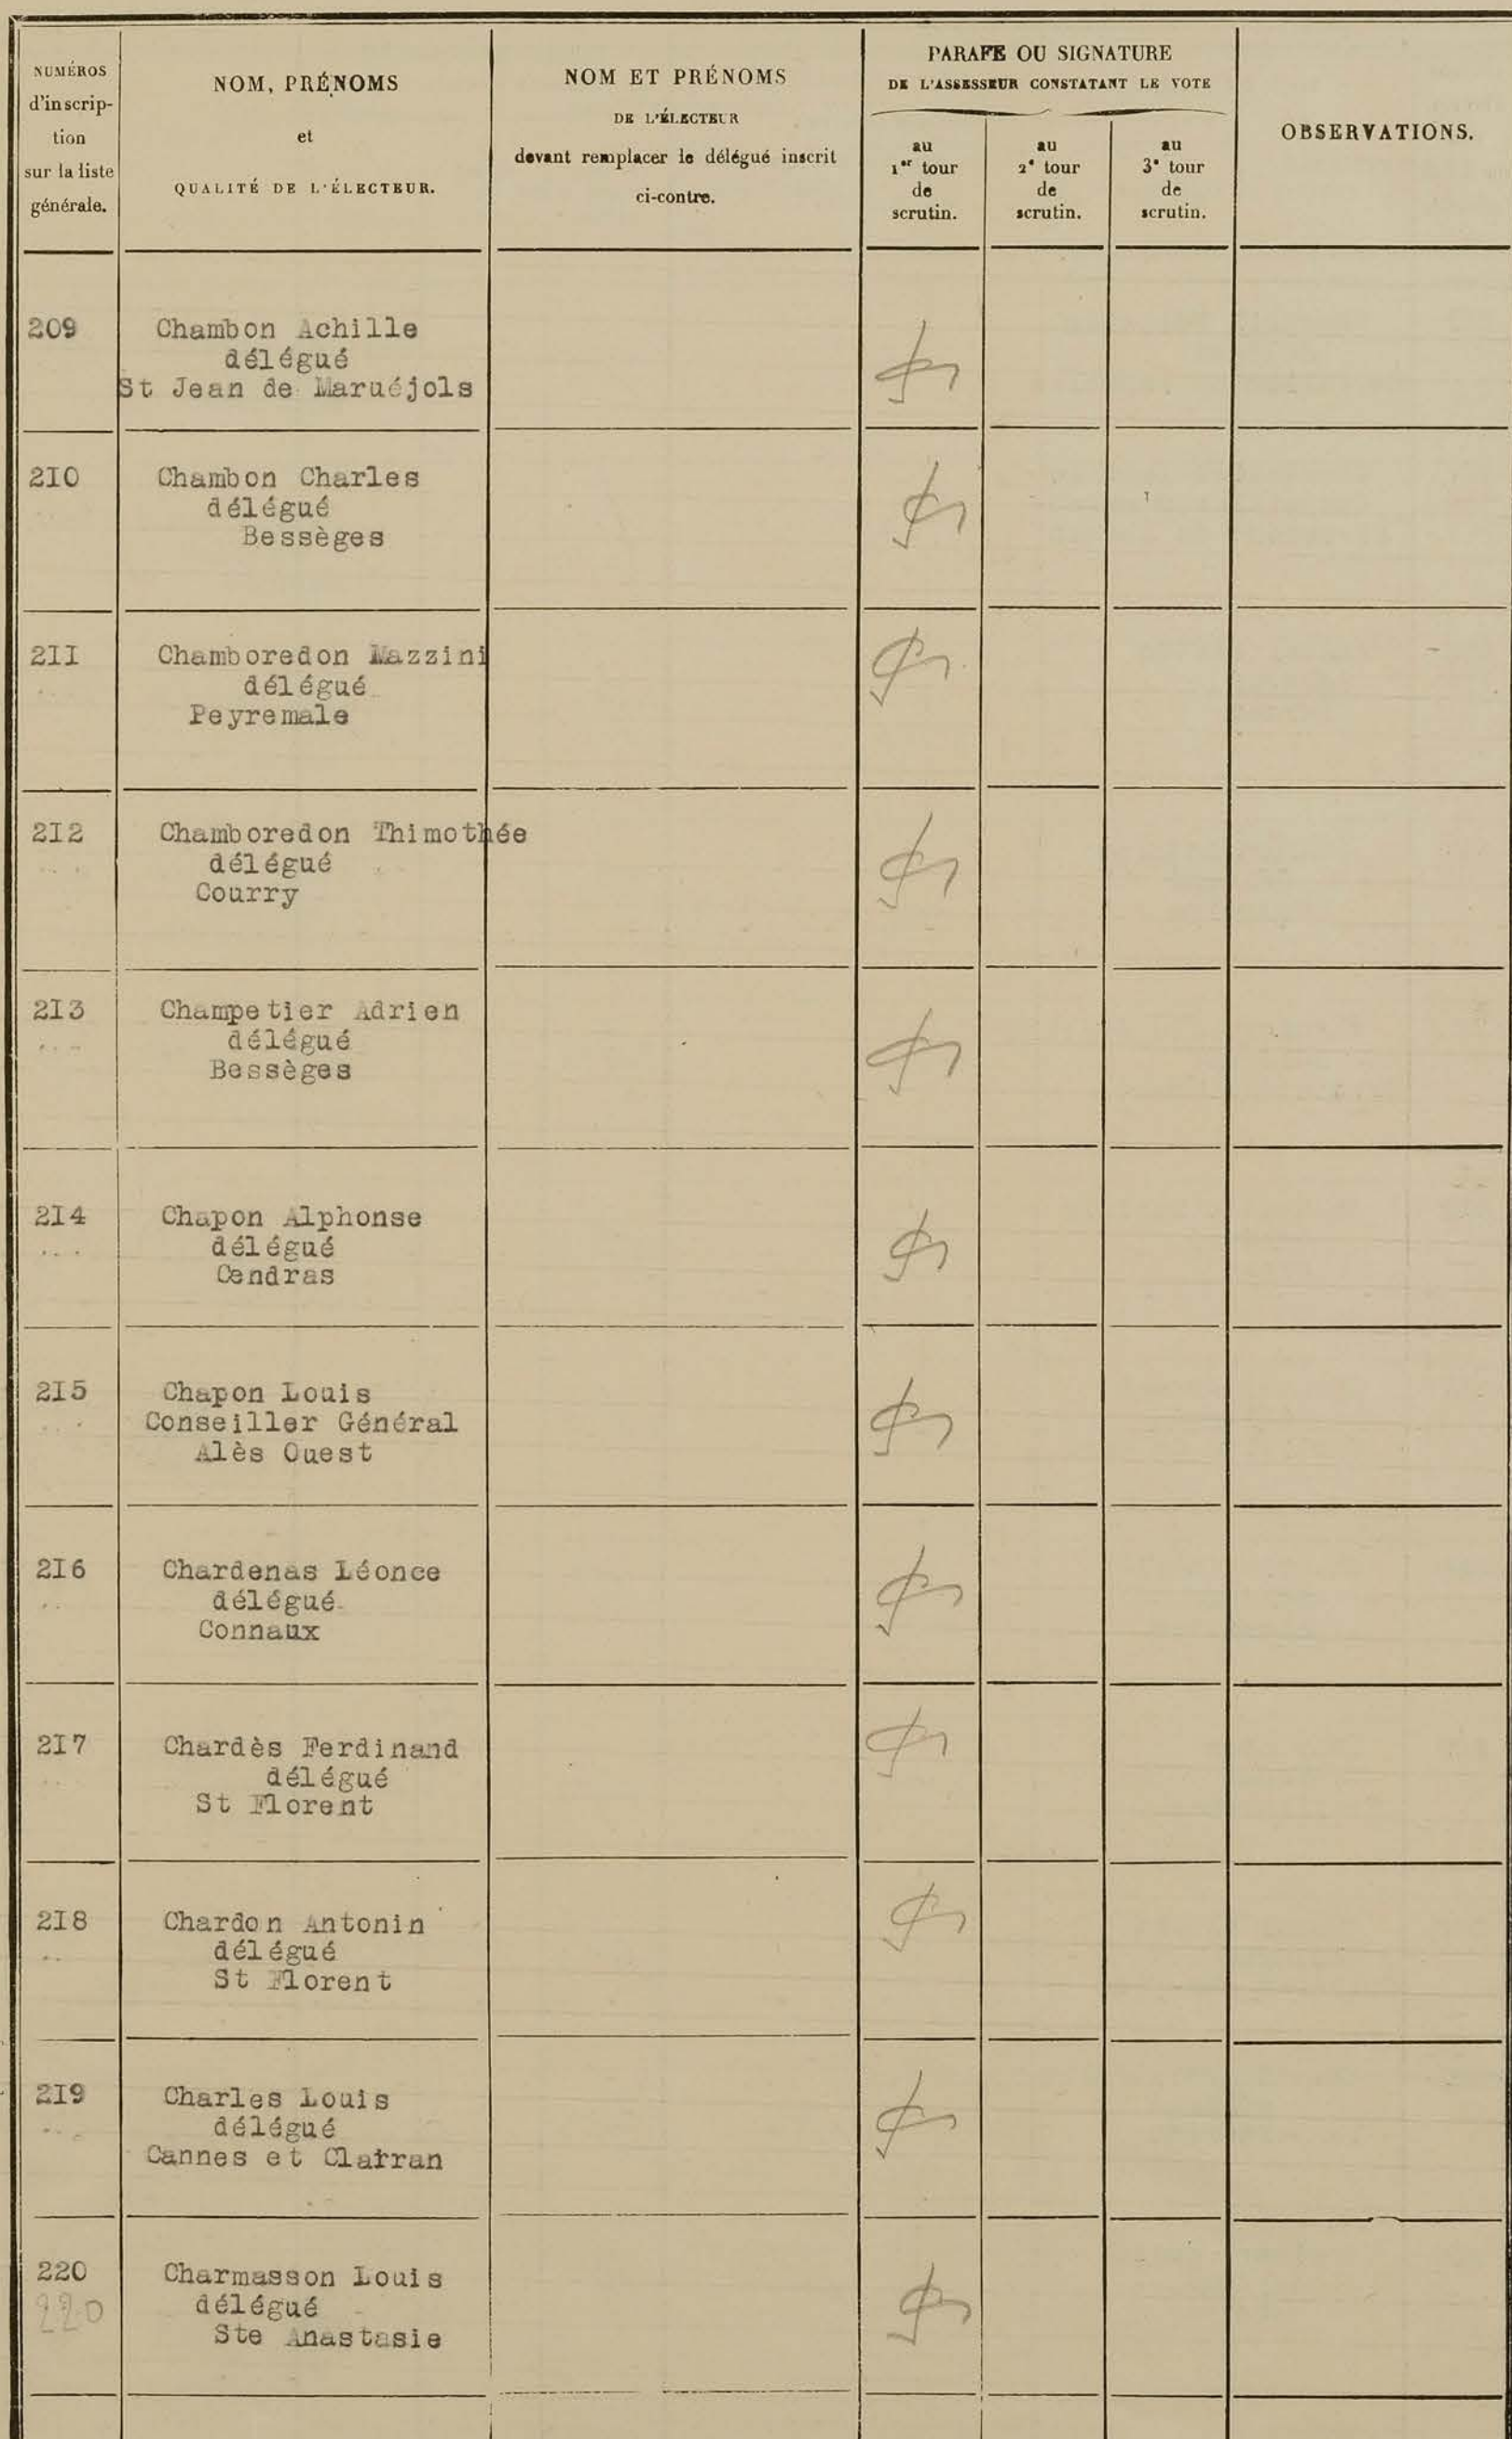 NUMÉROS
d'inscrip-
tion
sur la liste
générale.
NOM, PRÉNOMS
et
QUALITÉ DE L'ÉLECTEUR.
NOM ET PRÉNOMS
DE L'ÉLECTEUR
devant remplacer le délégué inscrit
ci-contre.
PARAFE OU SIGNATURE
DE L'ASSESSEUR CONSTATANT LE VOTE
au
1er tour
de
scrutin.
au
2e tour
de
scrutin.
au
3e tour
de
scrutin.
OBSERVATIONS.
209
Chambon Achille
délégué
St Jean de Maruéjols
2I0
Chambon Charles
délégué
Bessèges
2II
Chamboredon Mazzini
délégué
Peyremale
2I2
Chamboredon Thimothée
délégué
Courry
2I3
Champetier Adrien
délégué
Bessèges
2I4
Chapon Alphonse
délégué
Cendras
2I5
Chapon Louis
Conseiller Général
Alès Ouest
2I6
Chardenas Léonce
délégué
Connaux
2I7
Chardès Ferdinand
délégué
St Florent
2I8
Chardon Antonin
délégué
St Florent
2I9
Charles Louis
délégué
Cannes et Clairan
220
220
Charmasson Louis
délégué
Ste Anastasie